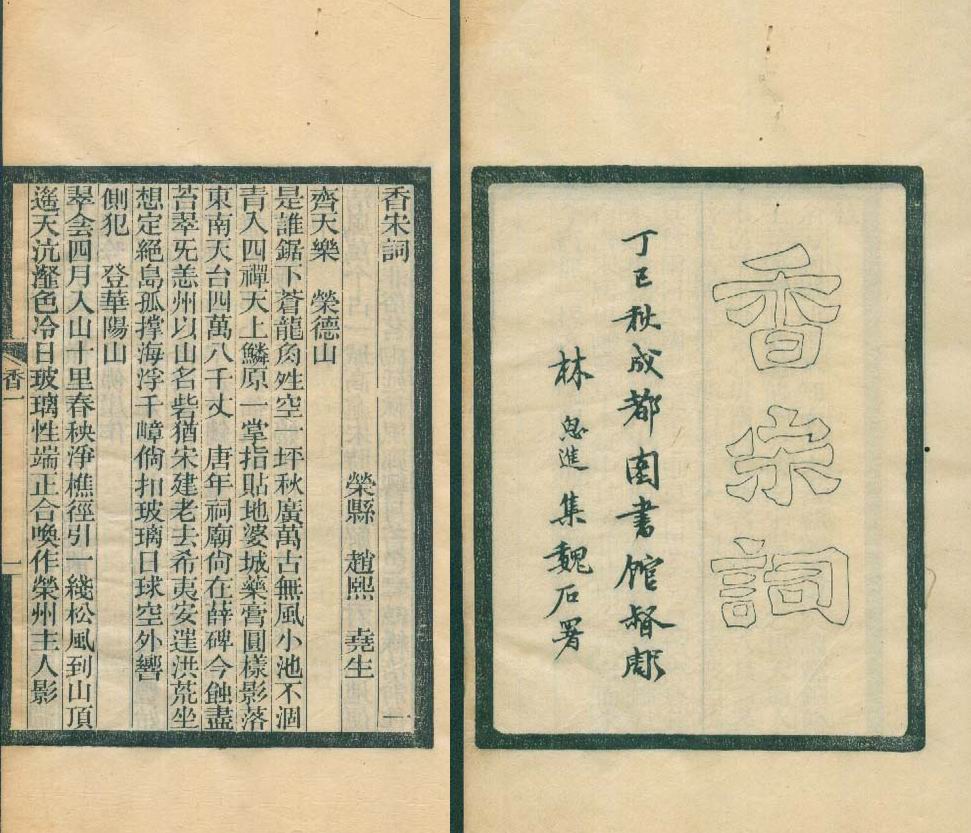 香宋詞
丁巳秋成都圖書館督彫
林思進集魏石署
香宋詞 一
榮縣 趙熙 堯生
齊天樂 榮德山
是誰鋸下蒼龍角姓空一坪秋廣萬古無風小池不涸
青入四禪天上鱗原一掌指貼地婆城藥膏圓樣影落
東南天台四萬八千丈 唐年祠廟尙在薛碑今蝕盡
苔翠旡恙州以山名砦猶宋建老去希夷安洪荒坐
想定絕島孤撐海浮千嶂倘扣玻璃日球空外響
側犯 登華陽山
翠侌四月入山十里春秧淨樵徑引一綫松風到山頂
遙天沆瀣色冷日玻璃性端正合喚作榮州主人影
香一 一